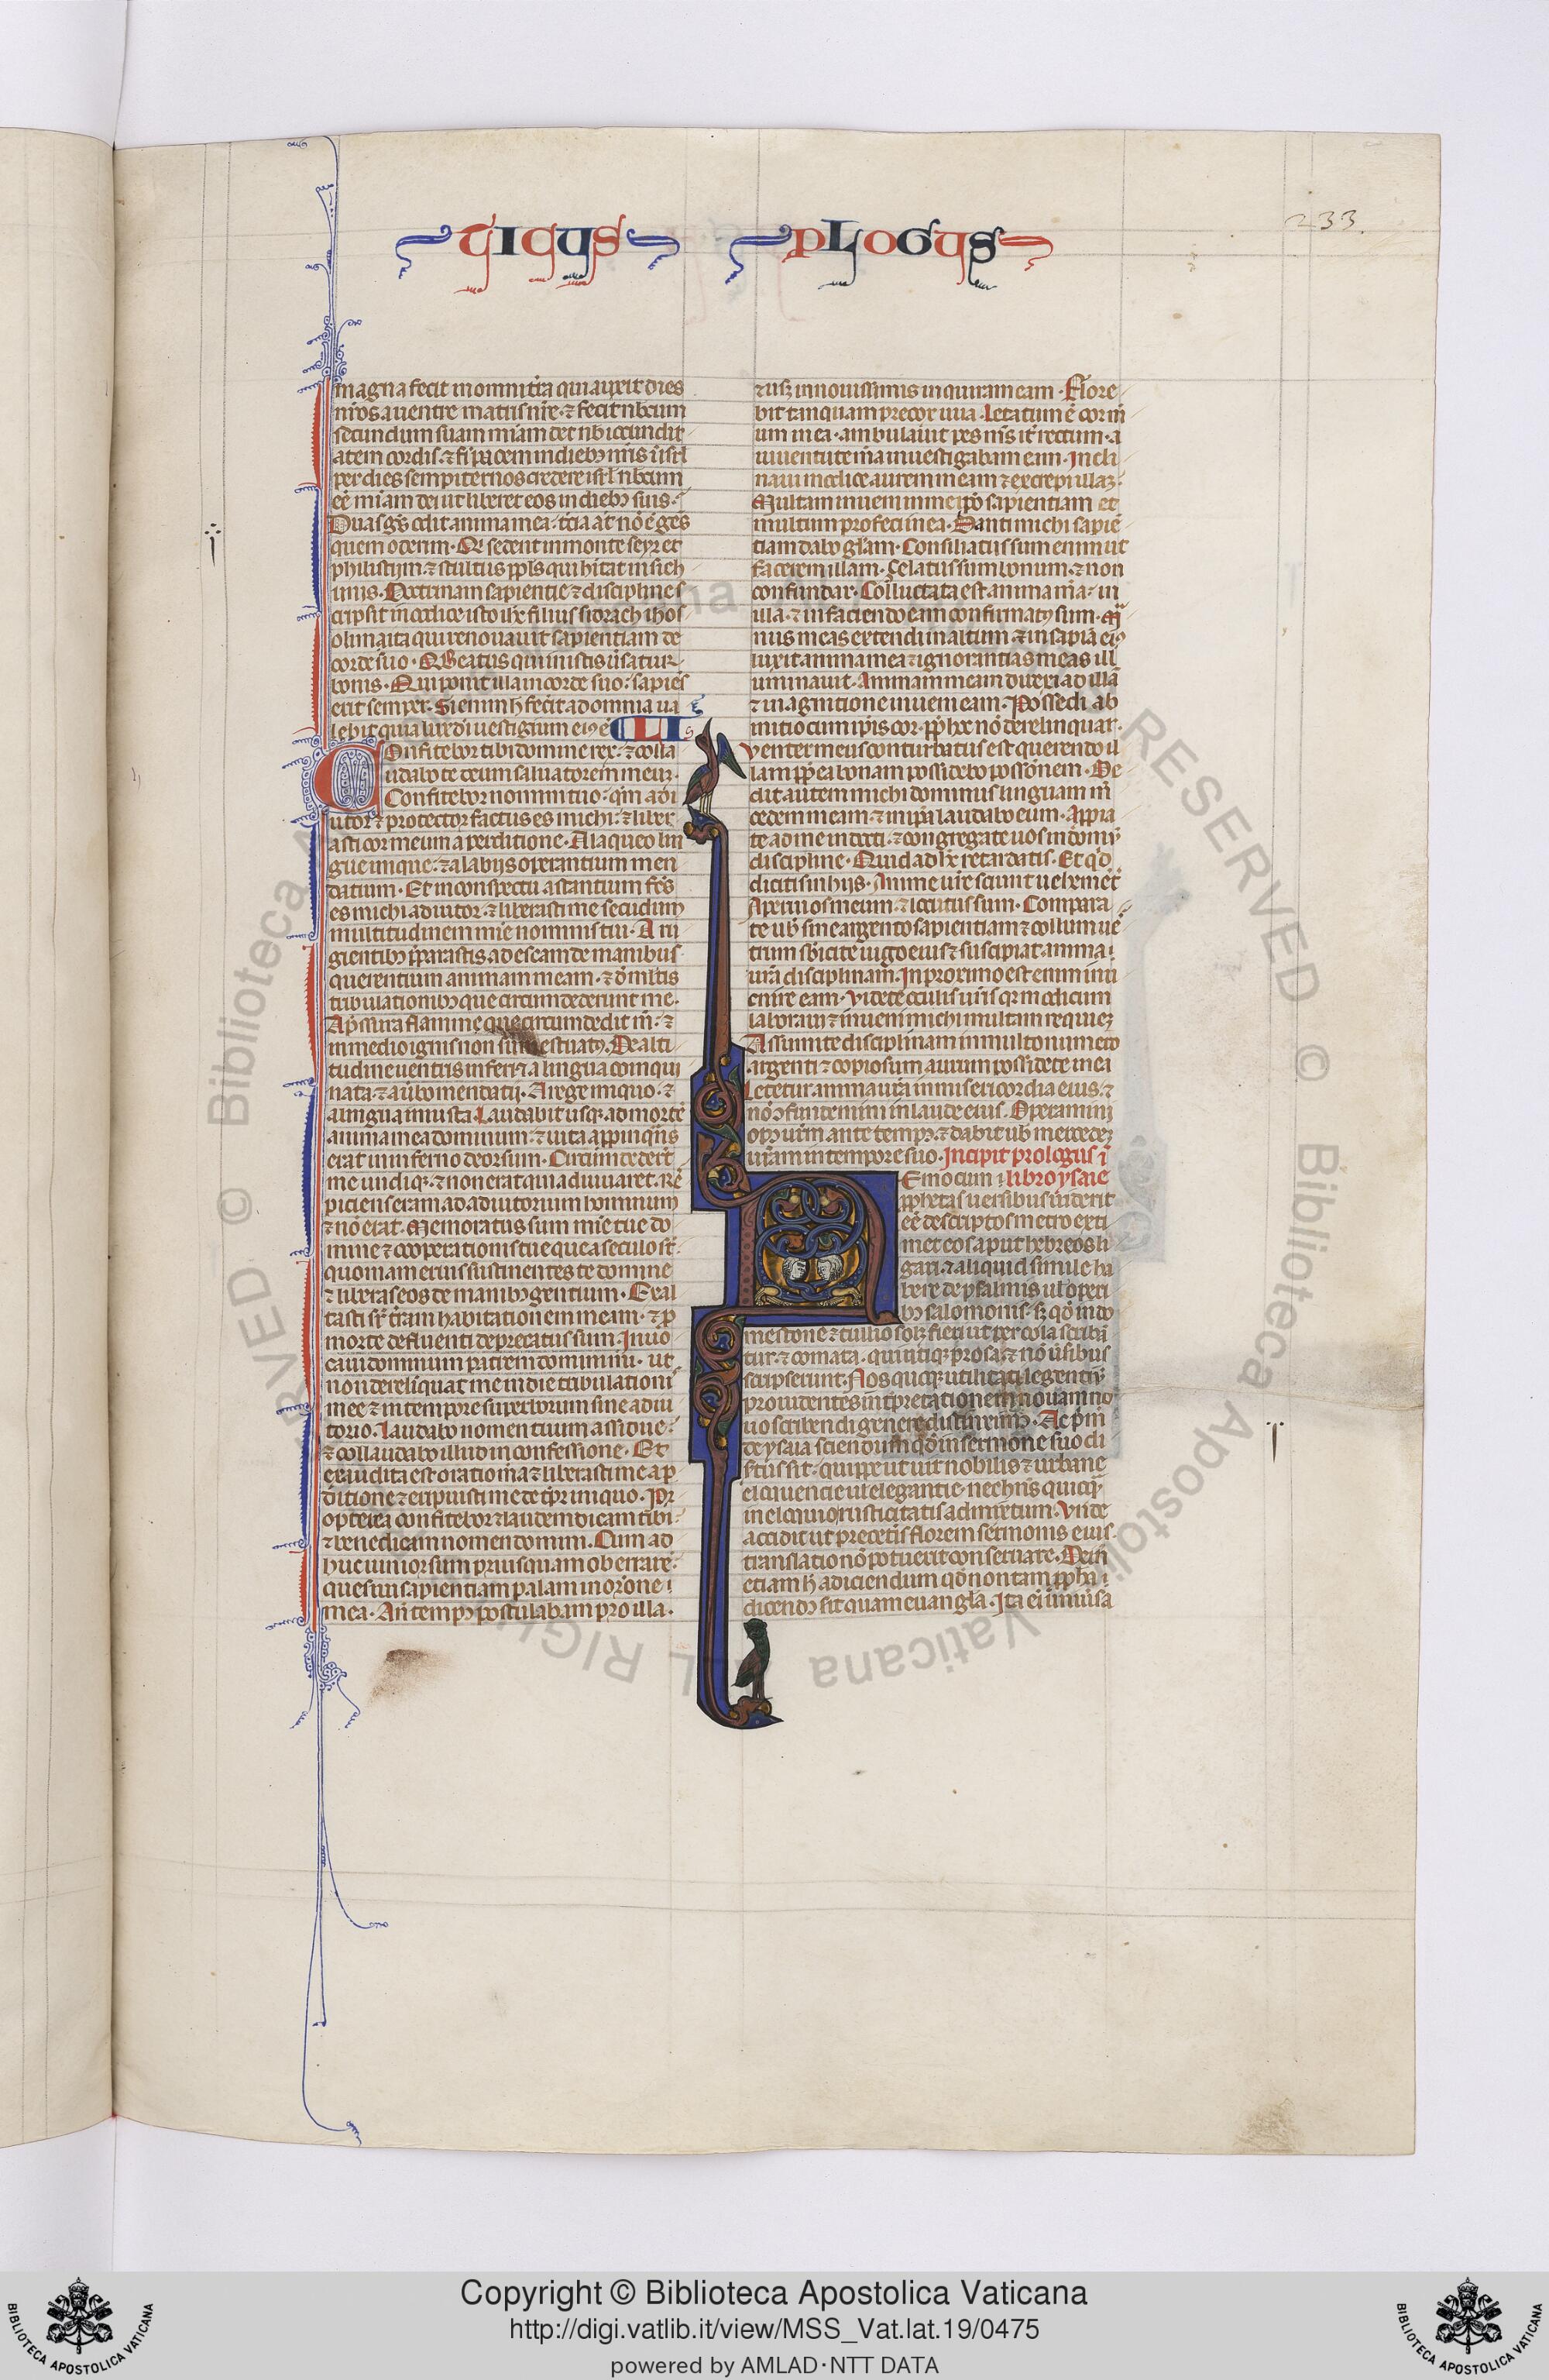 TICUS PLOGUS
233
magna fecit in omni tr̄a qui auxit dies
nr̄os a uentre matris nr̄e · ⁊ fecit nb̄cum
secundum suam mīam det nb̄ iocundit
atem cordis · ⁊ fi'i pacem in dieb; nr̄is ī isrl
per dies sempiternos credere isrl nb̄cum
eē mīam dei ut liberet eos in dieb; suis ·
Duas gēs odit anima mea · tcīa at̄ nō ē gēs
quem oderim · Qi sedent in monte seyr et
philistijm ⁊ stultus ppl's qui hītat in sich
imis · Doctrinam sapientie ⁊ discipline s
cripsit in codice isto ih̄c filius sirach ih̄os
olimaita qui renouauit sapientiam de
corde suo · Beatus qui in istis ūsatur
bonis · Qui ponit illa in corde suo : sapiēs
erit semper · Si enim h̄ fecit ad omnia ua
lebit quia lux dī uestigium ei⁹ ē · LI
Confitebor tibi domine rex : ⁊ colla
udabo te deum saluatorem meuȝ ·
Confitebor nomini tuo : qm̄ adi
utor ⁊ protector factus es michi : ⁊ liber
asti cor meum a perditione · A laqueo lin
gue inique : ⁊ a labijs operantium men
datium · Et in conspectu astantium fc̄s
es michi adiutor · ⁊ liberasti me secūdum
multitudinem mīe nominis tui · A ru
gientib; p̄paratis ad escam de manibus
querentium animam meam · ⁊ d' mltis
tribulationib; que circumdederunt me ·
A p̄ssura flamme que circumdedit m̄ : ⁊
in medio ignis non sum estuat⁹ · De alti
tudine uentris inferi ⁊ a lingua coinqui
nata · ⁊ a ūbo mendatij · A rege iniquo · ⁊
a lingua iniusta · Laudabit usq; ad mortē
anima mea dominum : ⁊ uita appinq̄ns
erat in inferno deorsum · Circumdedert̄
me undiq; · ⁊ non erat qui adiuuaret · Re
piciens eram · ad adiutorium hominum
⁊ nō erat · Memoratus sum mīe tue do
mine ⁊ cooperationis tue que a seculo st̄ ·
quoniam eruis sustinentes te domine
⁊ liberas eos de manib; gentium · Exal
tasti sr̄ tr̄am habitationem meam · ⁊ p
morte defluenti deprecatus sum · Inuo
caui dominum patrem domini mī · ut
non derelinquat me in die tribulationi
mee ⁊ in tempore superborum sine adiu
torio · Laudabo nomen tuum assidue :
⁊ collaudabo illud in confessione · Et
exaudita est oratio m̄a ⁊ liberasti me a p
ditione ⁊ eripuisti me de tp̄r iniquo · Pr
opterea confitebor ⁊ laudem dicam tibi :
⁊ benedicam nomen domini · Cum ad
huc iunior sum priusquam oberrare :
quesiui sapientiam palam in orōne
mea · An̄ temp⁹ postulabam pro illa ·
⁊ usq; in nouissimis inquiram eam · Flore
bit tanquam precox uua · Letatum ē cor m̄
um in ea · ambulauit pes m̄s it' rectum · a
iuuentute m̄a inuestigabam eam · Incli
naui modice aurem meam ⁊ excepi illaȝ ·
Multam inueni in me ip̄o sapientiam et
multum profeci in ea · Danti michi sapiē
tiam dabo gl̄am · Consiliatus sum enim ut
facerem illam · Zelatus sum bonum · ⁊ non
confundar · Colluctata est anima m̄a · in
illa · ⁊ in faciendo eam confirmat⁹ sum · Ma
nus meas extendi in altum ⁊ in sapīa ei⁹
luxit anima mea ⁊ ignorantias meas ill
uminauit · Animam meam direxi ad illā
⁊ in agnitione inueni eam · Possedi ab
initio cum ip̄is cor · pp̄ hoc nō derelinquar ·
Uenter meus conturbatus est querendo il
lam pp̄ea bonam possidebo possōnem · De
dit autem michi dominus linguam m̄
cedem meam · ⁊ in ip̄a laudabo eum · Appia
te ad me indocti · ⁊ congregate uos in domū
discipline · Quid adh' retardatis · Et q'd
dicitis in hijs · Anime ur̄e sciunt uehemēt
Aperui os meum · ⁊ locutus sum · Compara
te ub̄ sine argento sapientiam ⁊ collum ue
strum sb̄icite iugo eius ⁊ suscipiat anima
ur̄a disciplinam · In proximo est enim inu
enire eam · Uidete oculis ur̄is qr̄ modicum
laboraui ⁊ inueni michi multam requieȝ
Assumite disciplinam in multo numero
argenti ⁊ copiosum aurum possidete in ea
Letetur anima ur̄a in misericordia eius · ⁊
nō ɔfundemini in laude eius · Operamini
op⁹ ur̄m ante temp⁹ · ⁊ dabit ub̄ mercedeȝ
ur̄am in tempore suo · Incipit prologus ī
Nemo cum libro ysaie
pphetas uersibus uiderit
eē descriptos metro exti
met eos aput hebreos li
gari · ⁊ aliquid simile ha
bere de psalmis ul operi
b; salomonis · s; qd' in do
mestone ⁊ tullio solȝ fieri ut per cola scribā
tur · ⁊ comata · qui utiq; prosa · ⁊ nō ūsibus
scripserunt · Nos quoq; utilitati legentiū
prouidentes int̄pretationem nouam no
uo scribendi genere distinxim⁹ · Ac p'm
de ysaia sciendum qd' in sermone suo di
sertus sit · quippe ut uir nobilis ⁊ urbane
eloquencie ul elegantie · nec hn̄s quicq̄
in eloquio rusticitatis admixtum · Unde
accidit ut pre ceteris florem sermonis eius
translatio nō potuerit conseruare · Dein
etiam h̄ adiciendum qd' non tam pph̄a
dicend⁹ sit quam euangl̄a · Ita ei' uniūsa
© Biblioteca Apostolica Vaticana ALL RIGHTS RESERVED
© Biblioteca Apostolica Vaticana ALL RIGHTS RESERVED
Copyright © Biblioteca Apostolica Vaticana
http://digi.vatlib.it/view/MSS_Vat.lat.19/0475
powered by AMLAD·NTT DATA
BIBLIOTECA APOSTOLICA VATICANA
BIBLIOTECA APOSTOLICA VATICANA